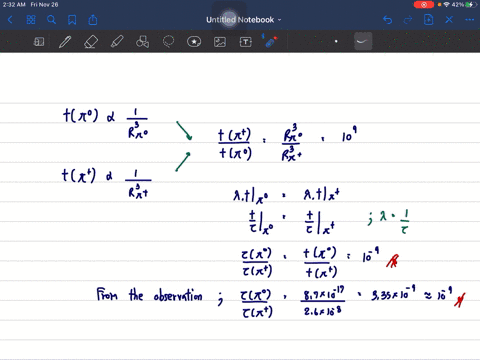 2:32 AM Fri Nov 26
42%
Untitled Notebook
t(π⁰) α 1/R³π⁰
t(π⁺)/t(π⁰) = R³π⁰/R³π⁺ = 10⁹
t(π⁺) α 1/R³π⁺
λ.t|π⁰ = λ.t|π⁺
t/τ|π⁰ = t/τ|π⁺ ; λ = 1/τ
τ(π⁰)/τ(π⁺) = t(π⁰)/t(π⁺) = 10⁻⁹
From the observation ; τ(π⁰)/τ(π⁺) = 8.7×10⁻¹⁷/2.6×10⁻⁸ = 3.35×10⁻⁹ ≈ 10⁻⁹